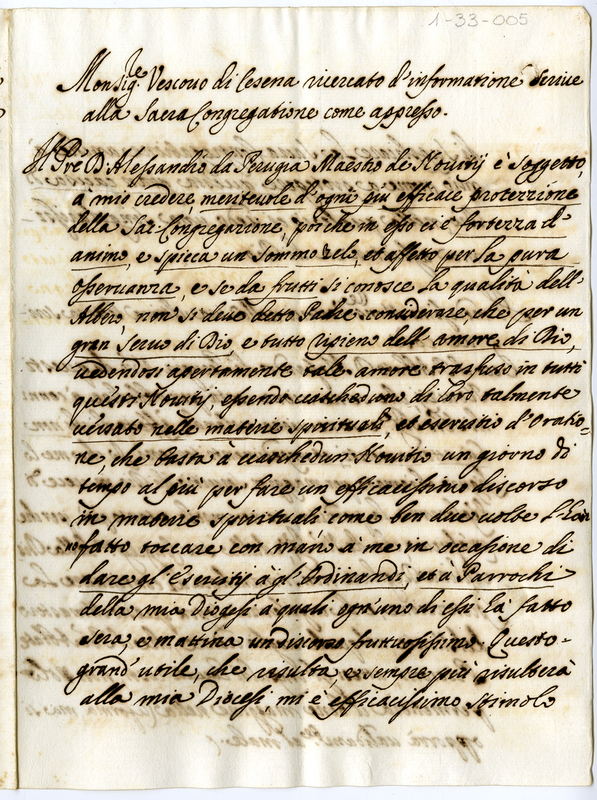 1-33-005
Monsig.re Vescovo di Cesena ricercato d'informatione scrive
alla Sacra Congregatione come appresso.
Il Pre D Alessandro da Perugia Maestro de Novitij è soggetto,
à mio credere, meritevole d'ogni più efficace protezzione
della Sac: Congregazione, poiche in esso ci è fortezza d'
animo, e spicca un sommo zelo, et affetto per la pura
osservanza, e se da frutti si conosce la qualità dell'
Albero, non si deve detto Padre considerare, che per un
gran Servo di Dio, e tutto ripieno dell'amore di Dio,
vedendosi apertamente tale amore trasfuso in tutti
questi Novitij, essendo ciascheduno di loro talmente
versato nelle materie spirituali, et esercitio d'Oratio=
ne, che basta à ciaschedun Novitio un giorno di
tempo al più per fare un efficacissimo discorso
in materie spirituali come ben due volte l'han
no fatto toccare con mano à me in occasione di
dare gl'esercitij à gl'Ordinandi, et à Parrochi
della mia Diogesi à quali ogn'uno di essi hà fatto
sera, e mattina un discorso fruttuosissimo. Questo
grand'utile, che risulta e sempre più risulterà
alla mia Diocesi, mi è efficacissimo stimolo